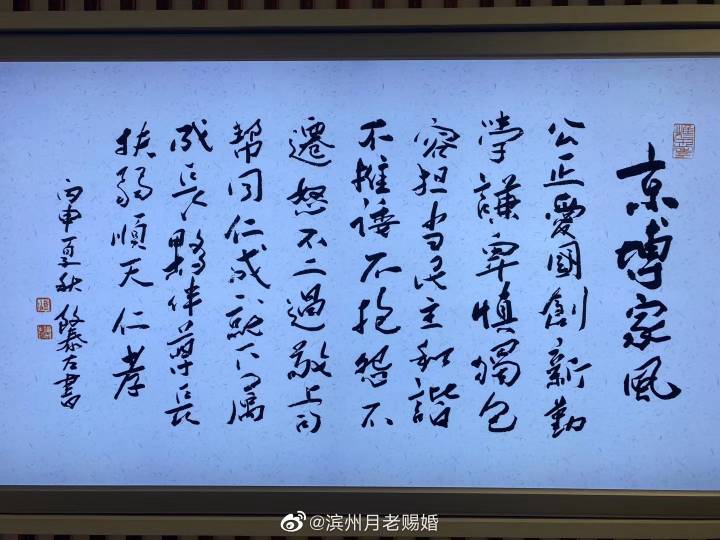 京博家风
公正愛國創新勤
学謙卑慎獨包
容担当民主和諧
不推诿不抱怨不
遷怒不二過敬上司
帮同仁成就下属
成長夥伴尊長
扶弱順天仁孝
丙申夏秋
書
@滨州月老赐婚